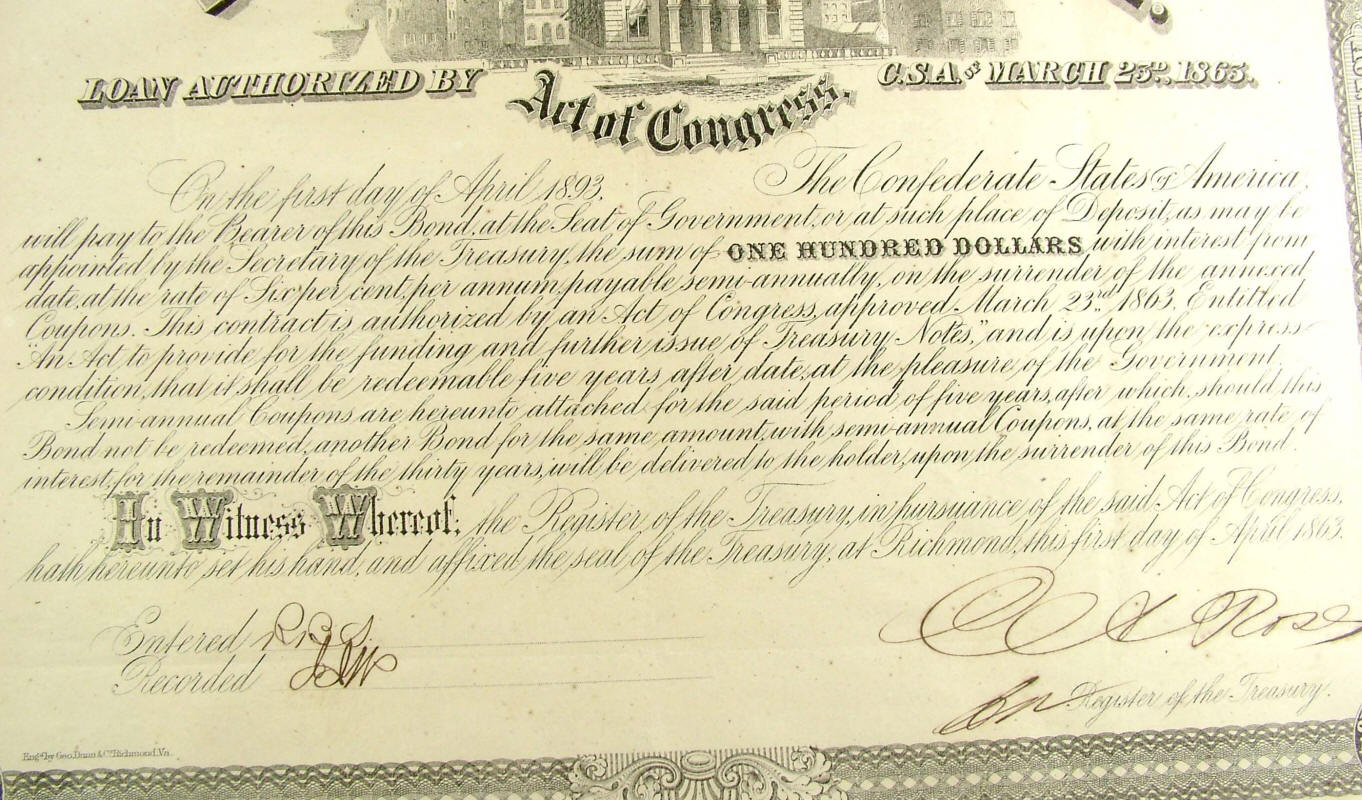 LOAN AUTHORIZED BY Act of Congress, C.S.A. OF MARCH 23D, 1863.
On the first day of April 1893, The Confederate States of America,
will pay to the Bearer of this Bond, at the Seat of Government, or at such place of Deposit, as may be
appointed by the Secretary of the Treasury, the sum of ONE HUNDRED DOLLARS with interest from
date, at the rate of Six per cent, per annum, payable semi-annually, on the surrender of the annexed
Coupons. This contract is authorized by an Act of Congress, approved March 23rd 1863, Entitled
"An Act to provide for the funding and further issue of Treasury Notes," and is upon the express
condition, that it shall be redeemable five years after date, at the pleasure of the Government.
Semi-annual Coupons are hereunto attached for the said period of five years, after which, should this
Bond not be redeemed, another Bond for the same amount, with semi-annual Coupons, at the same rate of
interest, for the remainder of the thirty years, will be delivered to the holder, upon the surrender of this Bond.
In Witness Whereof, the Register of the Treasury, in pursuance of the said Act of Congress,
hath hereunto set his hand, and affixed the seal of the Treasury, at Richmond, this first day of April 1863.
Entered
Recorded
Rose
Register of the Treasury.
Engd by Geo. Dunn & Co. Richmond, Va.